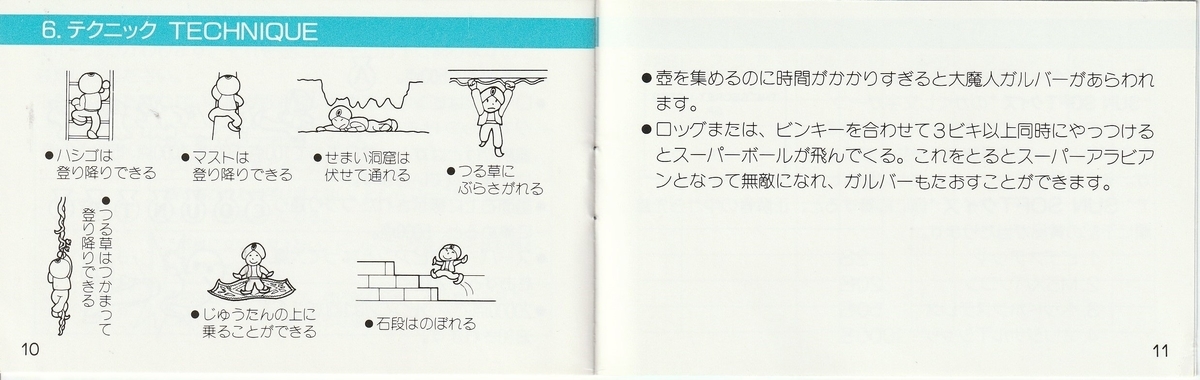 6. テクニック TECHNIQUE
●ハシゴは
登り降りできる
●マストは
登り降りできる
●せまい洞窟は
伏せて通れる
●つる草に
ぶらさがれる
●つる草はつかまって
登り降りできる
●じゅうたんの上に
乗ることができる
●石段はのぼれる
10
●壺を集めるのに時間がかかりすぎると大魔人ガルバーがあらわれ
ます。
●ロッグまたは、ビンキーを合わせて3ビキ以上同時にやっつける
とスーパーボールが飛んでくる。これをとるとスーパーアラビア
ンとなって無敵になれ、ガルバーもたおすことができます。
11